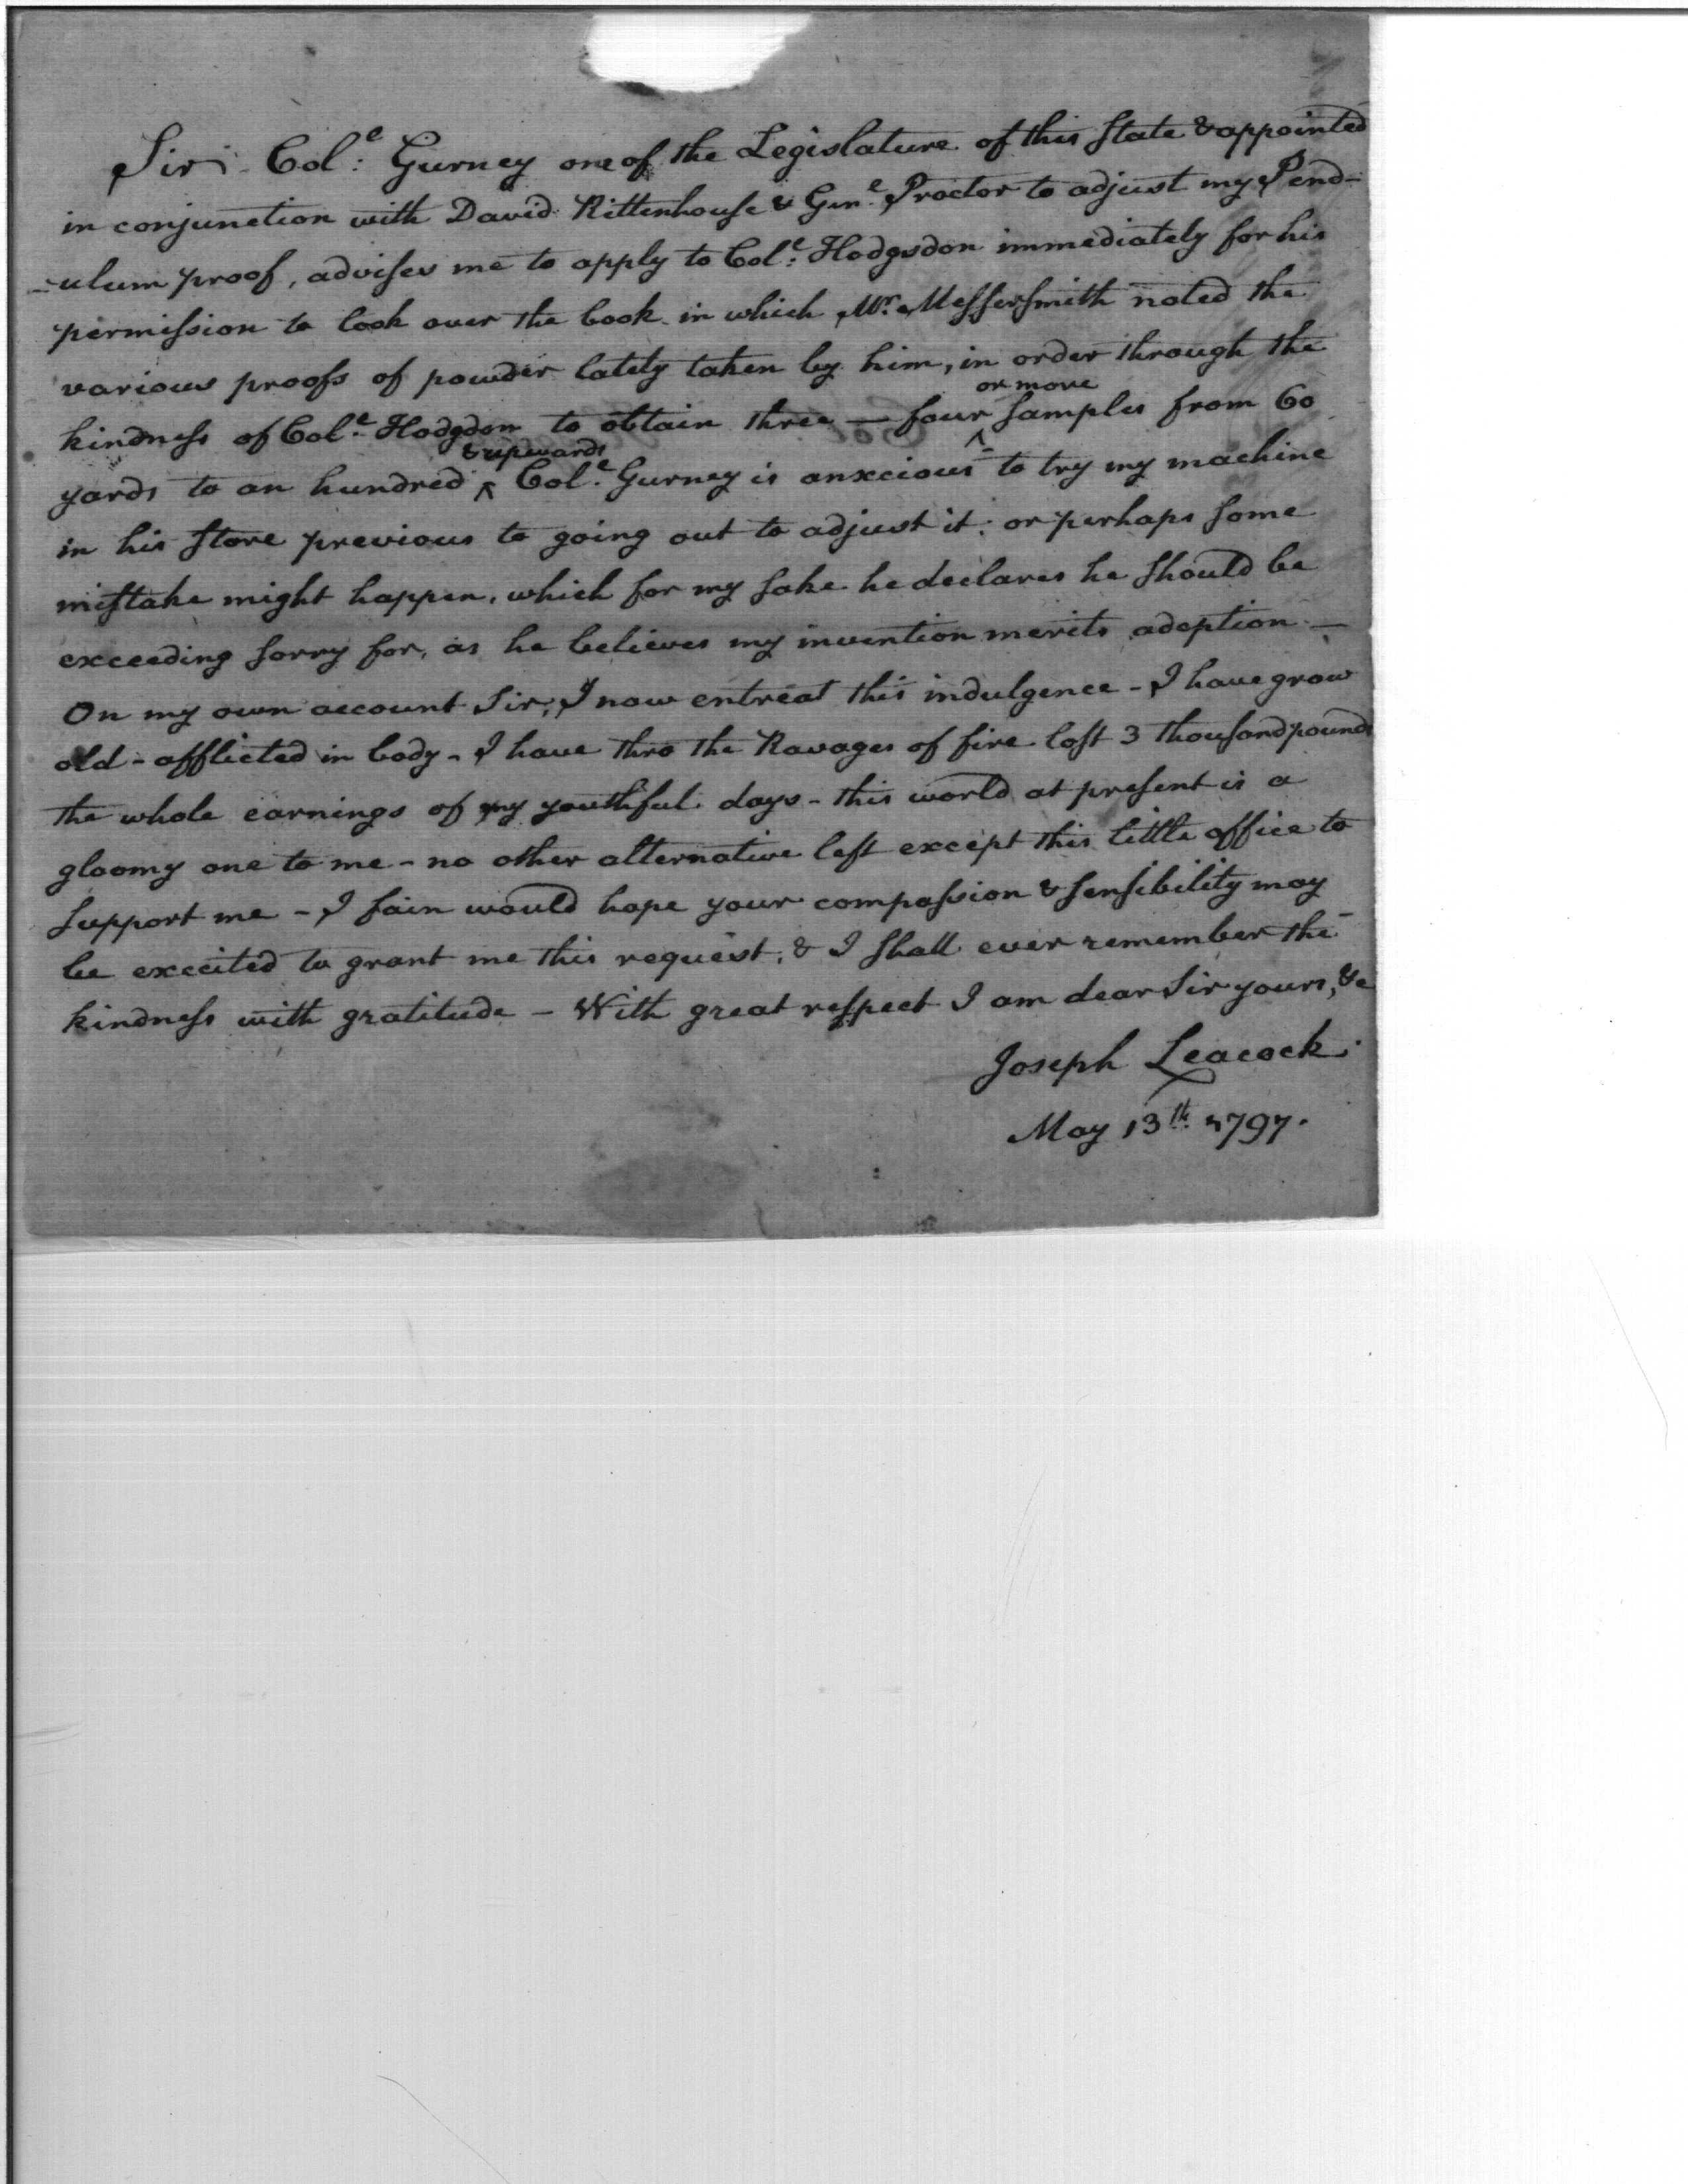 Sir. Col:e Gurney one of the Legislature of this State & appointed
in conjunction with David Rittenhouse & Gen.e Proctor to adjust my Pend-
-ulum proof, advises me to apply to Col:e Hodgsdon immediately for his
permission to look over the book in which Mr. Messersmith noted the
various proofs of powder lately taken by him, in order through the
or more
kindness of Col.e Hodgdon to obtain three — four ^ samples from 60
& upwards
yards to an hundred ^ Col.e Gurney is anxcious to try my machine
in his store previous to going out to adjust it: or perhaps some
mistake might happen, which for my sake he declares he should be
exceeding sorry for, as he believes my invention merits adoption —
On my own account Sir; I now entreat this indulgence - I have grow
old - afflicted in body - I have thro the Ravages of fire lost 3 thousand pounds
the whole earnings of my youthful days - this world at present is a
gloomy one to me - no other alternative left except this little office to
support me - I fain would hope your compassion & sensibility may
be excited to grant me this request, & I shall ever remember the
kindness with gratitude - With great respect I am dear Sir yours, &c
Joseph Leacock.
May 13th 1797.